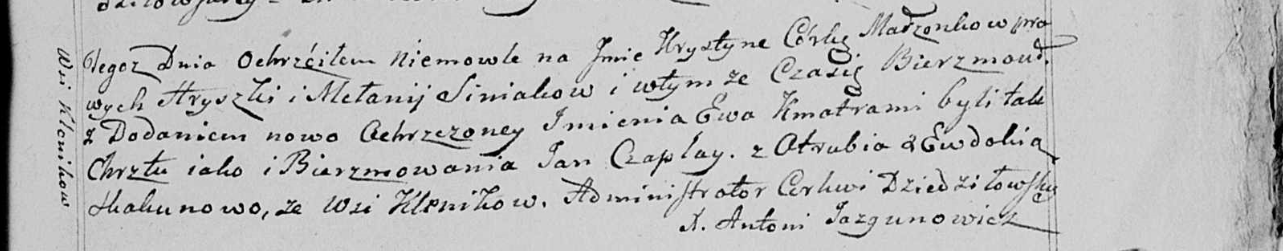 Wsi Klenikow
Tegoz Dnia Ochrzciłem Niemowle na Jmie Krystyne Corkę Małzonkow pra
wych Hryszki i Mełanij Siniakow i wtym ze Czasię Bierzmował
z Dodaniem nowo Ochrzczoney Imienia Ewa Kmotrami byli tak
Chrztu iako i Bierzmowania Jan Czaplay. z Otrubia & Ewdokia
Skakunowo, ze Wsi Klenikow. Administrator Cerkwi Dziedziłowskey
X. Antoni Jazgunowicz